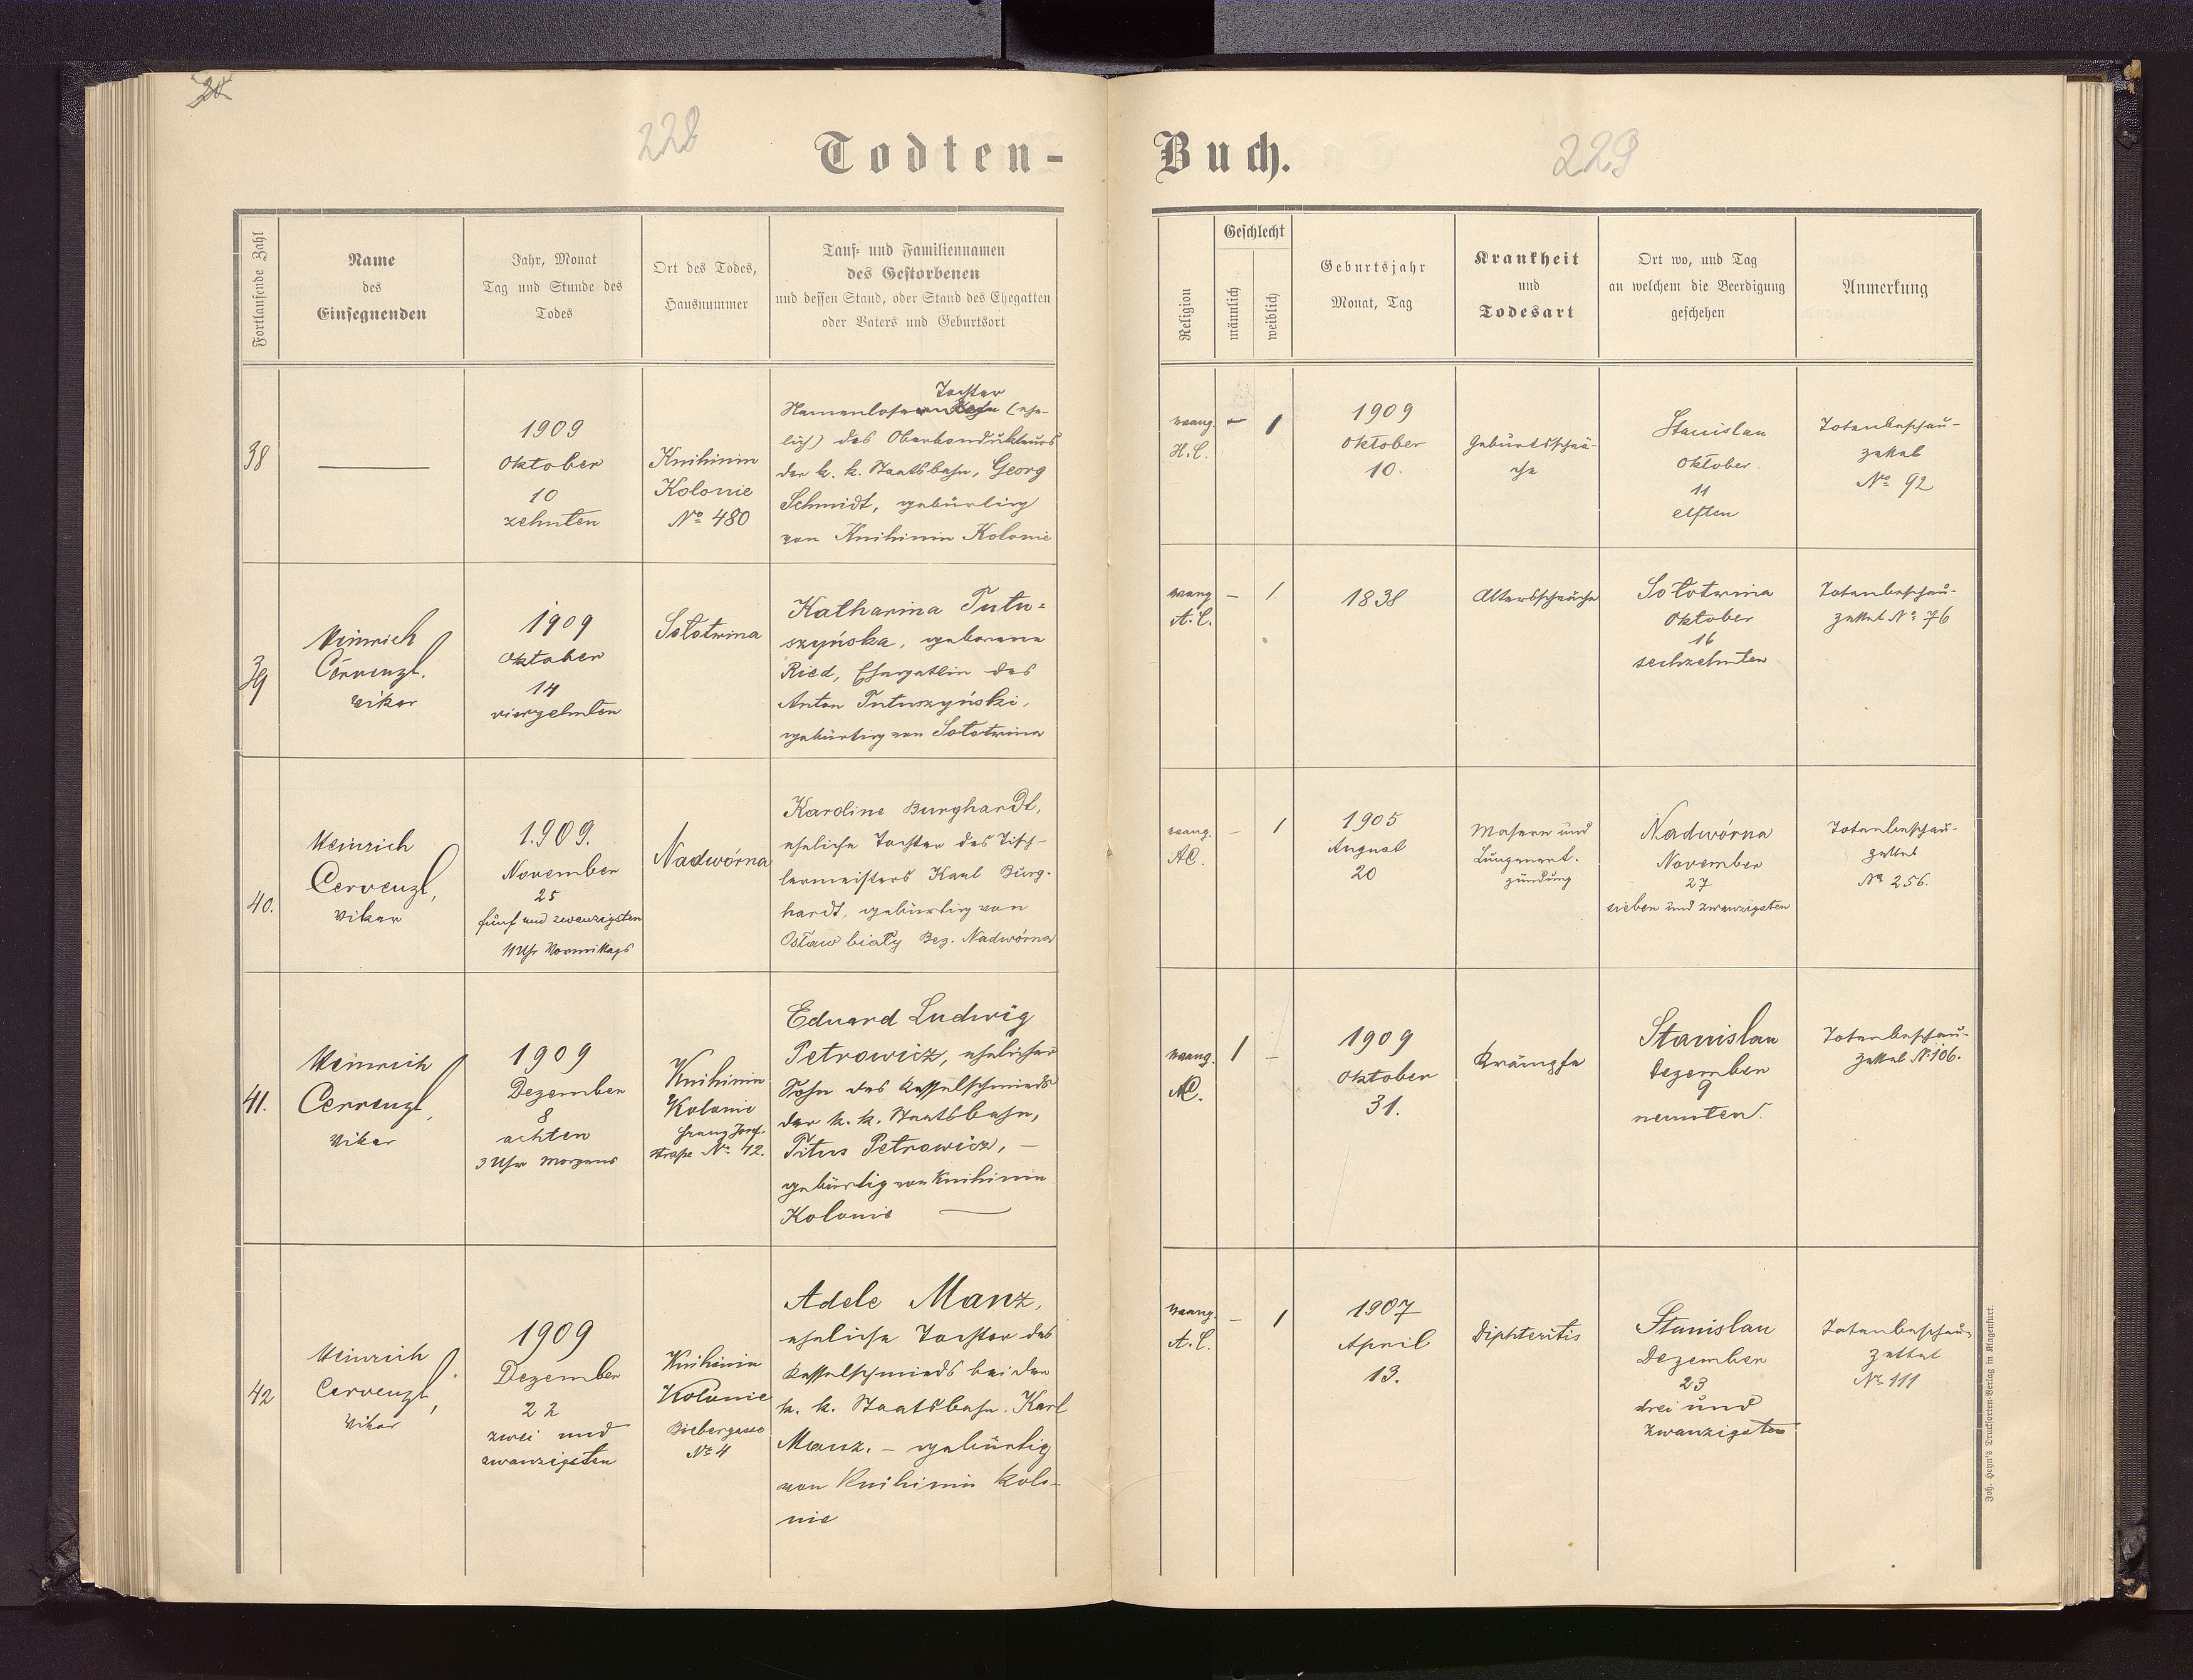 228
229
Todten-Buch.
Fortlaufende Zahl
Name
des
Einsegnenden
Jahr, Monat
Tag und Stunde des
Todes
Ort des Todes,
Hausnummer
Tauf- und Familiennamen
des Gestorbenen
und dessen Stand, oder Stand des Ehegatten
oder Vaters und Geburtsort
Religion
Geschlecht
männlich
weiblich
Geburtsjahr
Monat, Tag
Krankheit
und
Todesart
Ort wo, und Tag
an welchem die Beerdigung
geschehen
Anmerkung
38
1909
Oktober
10
zehnten
Knihinin
Kolonie
No 480
Tochter
Namenlose (ehe-
lich) des Oberkondukteurs
der k. k. Staatsbahn, Georg
Schmidt, gebürtig
von Knihinin Kolonie
evang.
H.C.
1
1909
Oktober
10.
Geburtsschwä-
che
Stanislau
Oktober.
11
elften
Totenbeschau-
zettel
No 92
39
Heinrich
Cervenzl.
Vikar
1909
Oktober
14
vierzehnten
Sołotwina
Katharina Tutu-
szyńska, geborene
Ried, Ehegattin des
Anton Tutuszyński,
gebürtig von Sołotwina
evang
A.C.
–
1
1838
Altersschwäche
Sołotwina
Oktober
16
sechzehnten
Totenbeschau-
zettel No 76
40.
Heinrich
Cervenzl,
Vikar
1909.
November
25
fünf und zwanzigsten
11 Uhr Vormittags
Nadwórna
Karoline Burghardt,
eheliche Tochter des Tisch-
lermeisters Karl Burg-
hardt, gebürtig von
Osław biały Bez. Nadwórna
evang.
AC.
–
1
1905
August
20
Masern und
Lungenent-
zündung
Nadwórna
November
27
sieben und zwanzigsten
Totenbeschau-
zettel
No 256.
41.
Heinrich
Cervenzl,
Vikar
1909
Dezember
8
achten
3 Uhr Morgens
Knihinin
Kolonie
Franz Josef-
straße No 42.
Eduard Ludwig
Petrowicz, ehelicher
Sohn des Kesselschmieds
der k. k. Staatsbahn,
Titus Petrowicz, –
gebürtig von Knihinin
Kolonie —
evang.
AC.
1
–
1909
Oktober
31.
Krämpfe
Stanislau
Dezember
9
neunten.
Totenbeschau-
zettel No 106.
42
Heinrich
Cervenzl,
Vikar
1909
Dezember
22
zwei und
zwanzigsten
Knihinin
Kolonie
Biebergasse
No 4
Adele Manz,
eheliche Tochter des
Kesselschmieds bei der
k. k. Staatsbahn. Karl
Manz. – gebürtig
von Knihinin Kolo-
nie
evang.
A.C.
–
1
1907
April
13.
Diphteritis
Stanislau
Dezember
23
drei und
zwanzigsten
Totenbeschau-
zettel
No 111
Joh. Heyn's Drucksorten-Verlag in Klagenfurt.